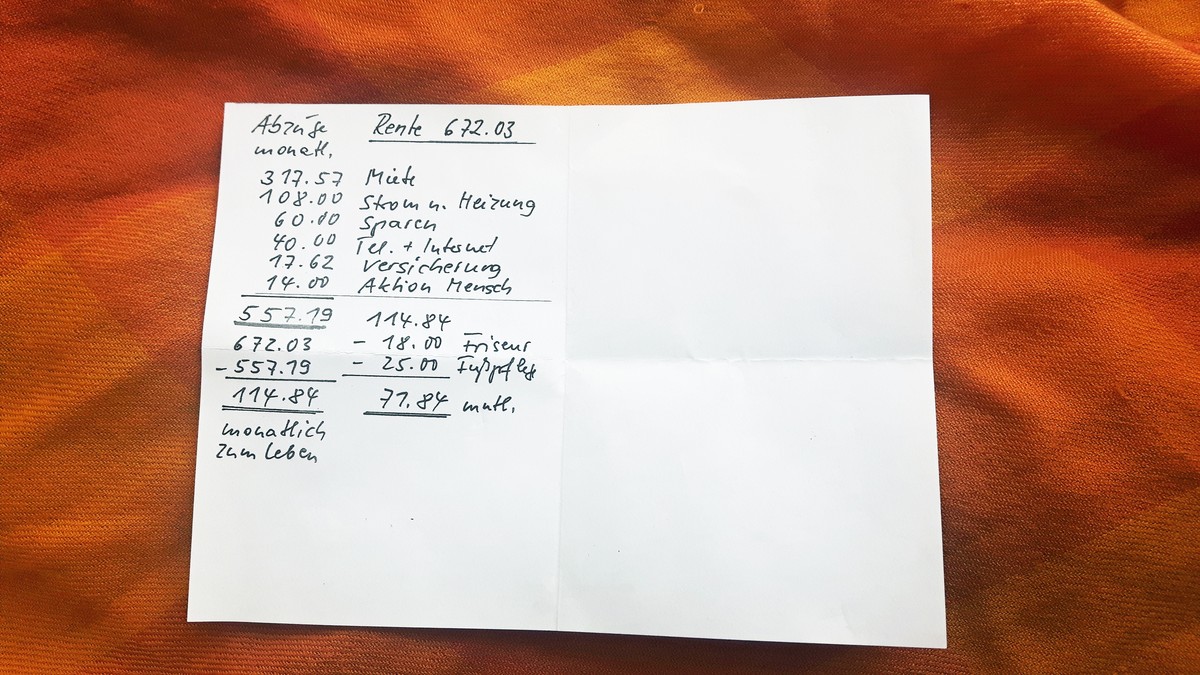 Abzüge Rente 672.03
monatl.
317.57 Miete
108.00 Strom u. Heizung
60.00 Sparen
40.00 Tel. + Internet
17.62 Versicherung
14.00 Aktion Mensch
557.19 114.84
672.03 - 18.00 Friseur
- 557.19 - 25.00 Fußpflege
114.84 71.84 mntl.
monatlich
zum Leben